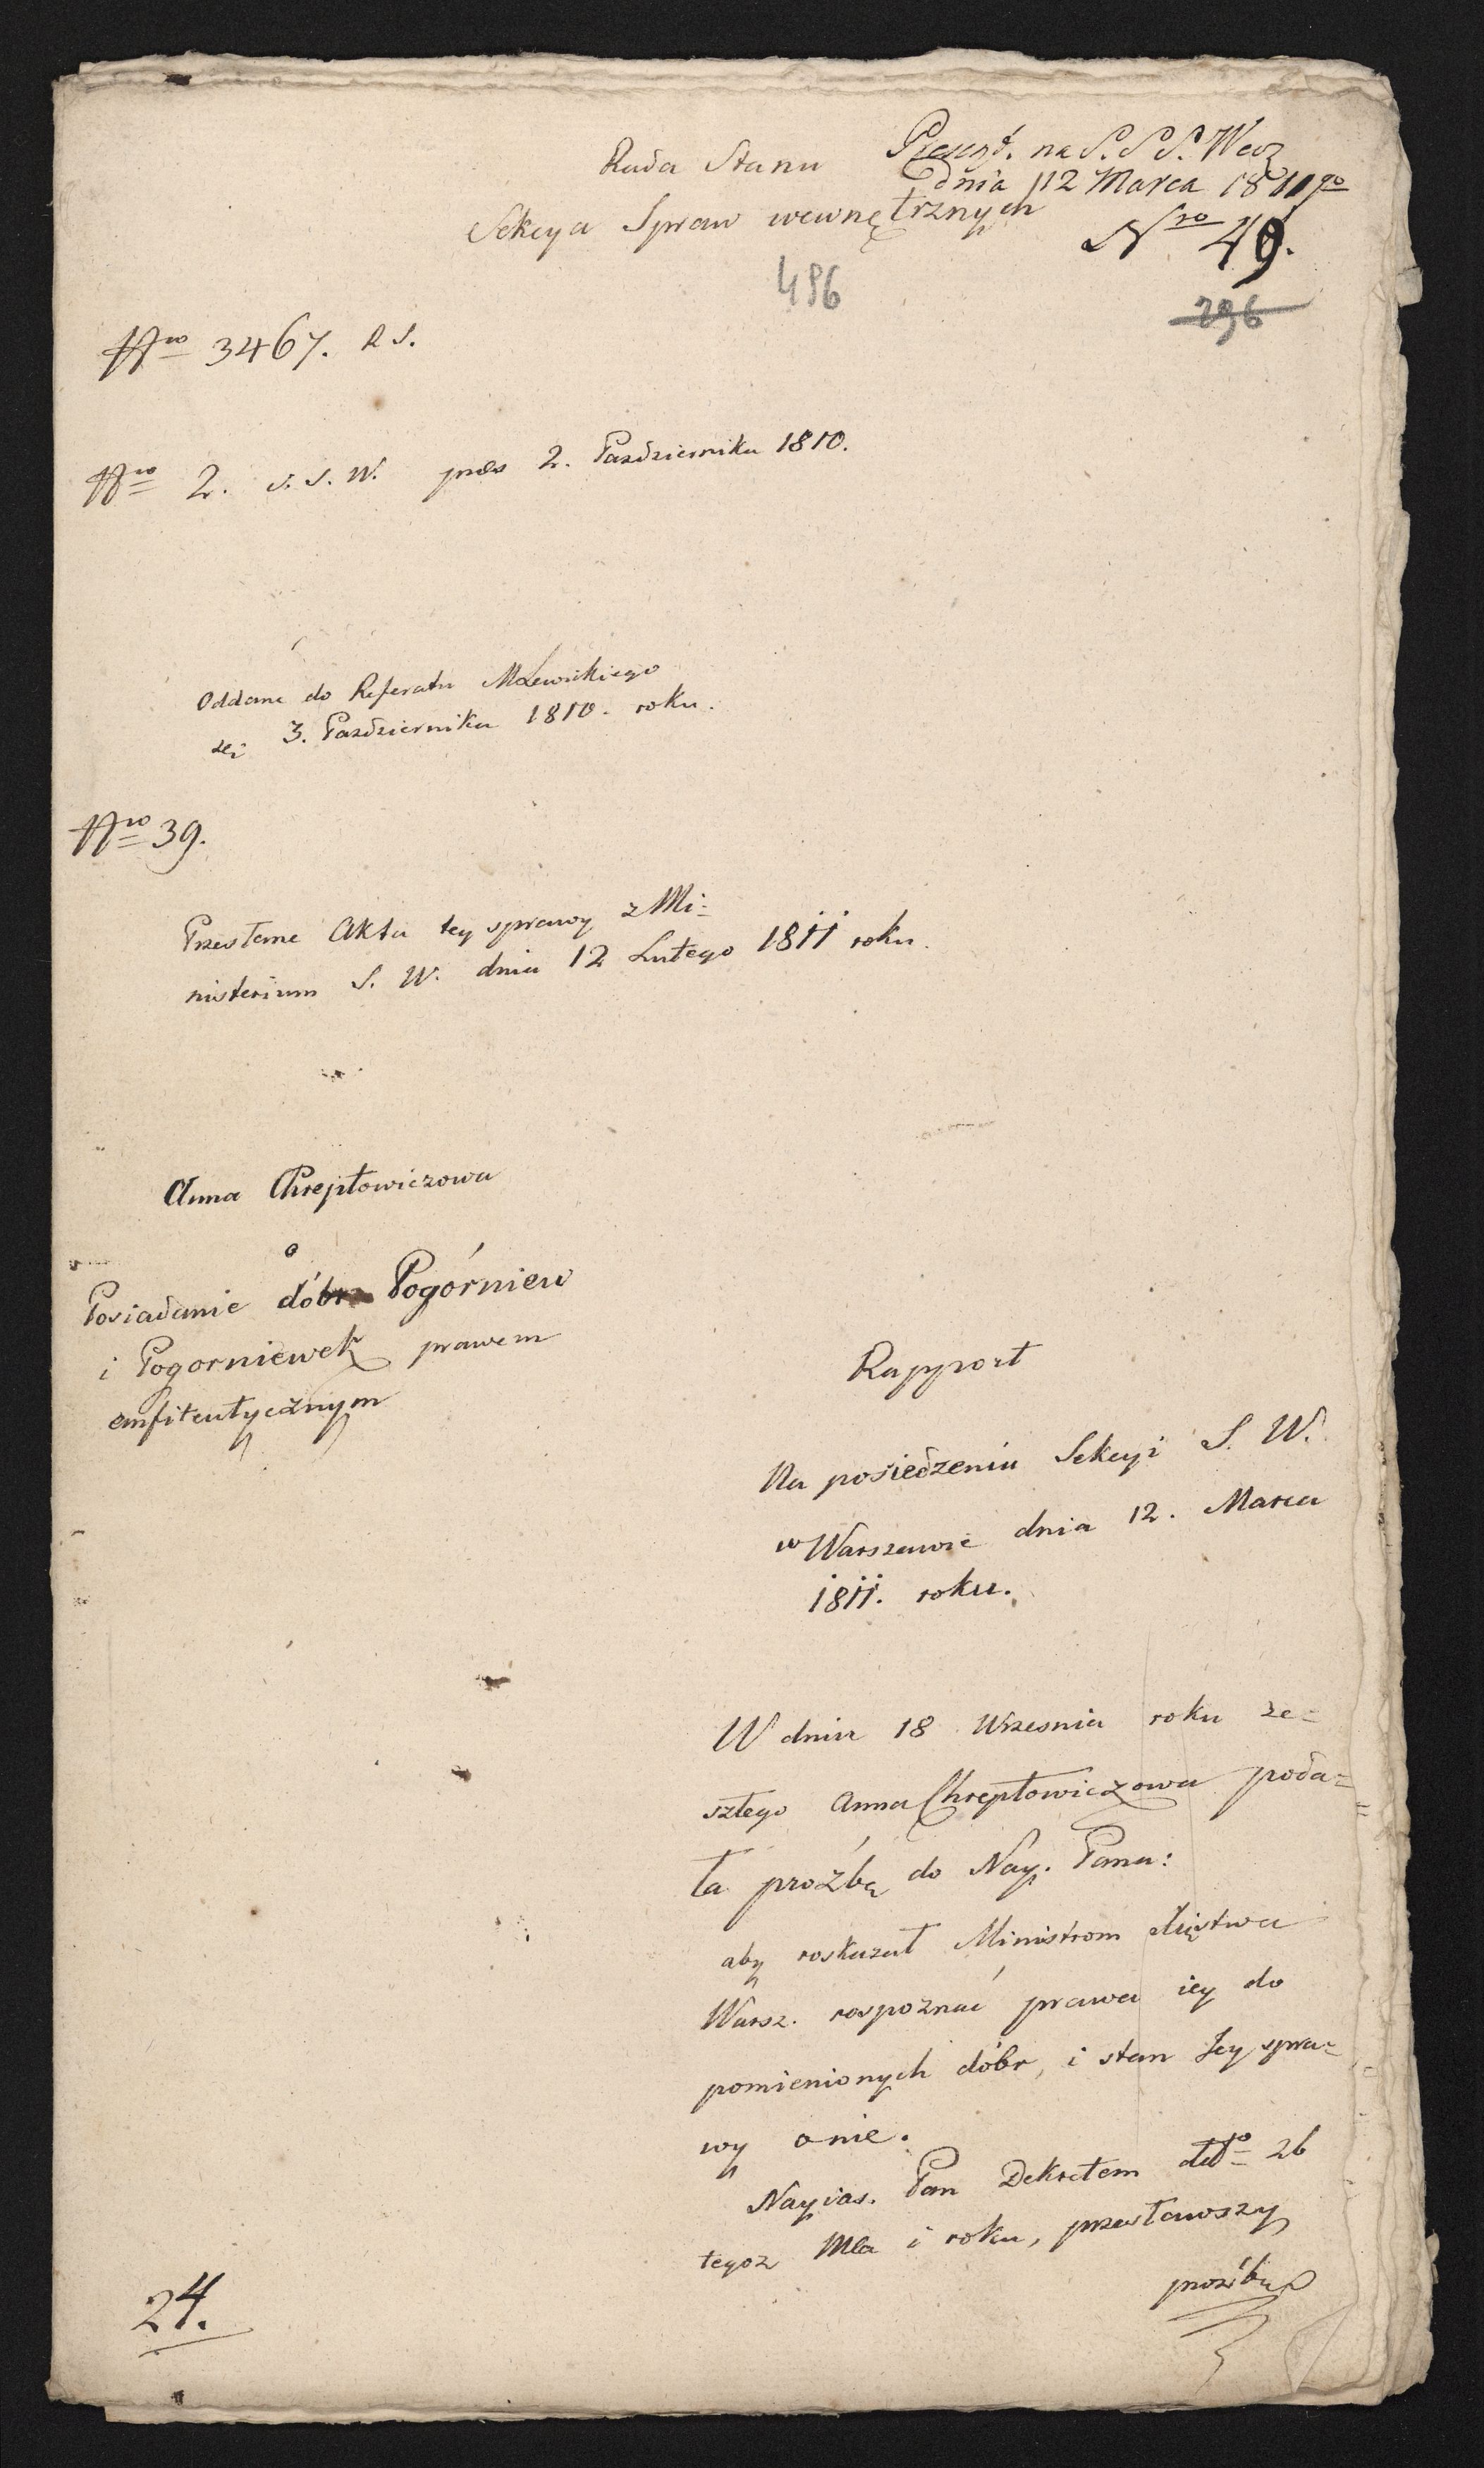 Rada Stanu
Sekcya Spraw wewnętrznych
na S. S. S. Wez
dnia 12 Marca 1811go
Nro 49.
496
296
Nro 3467. R S.
Nro 2. S. S. W. pres 2. Pazdziernika 1810.
Oddane do Referatu
3. Pazdziernika 1810. roku.
Nro 39.
Przesłane Akta tey sprawy z Mi=
nisterium S. W. dnia 12 Lutego 1811 roku.
Anna Chreptowiczowa
o
Posiadanie dóbr Pogórniew
i Pogorniewek prawem
emfiteutycznym
Rapport
Na posiedzeniu Sekcyi S. W.
w Warszawie dnia 12. Marca
1811. roku.
W dniu 18 Wrzesnia roku ze=
szłego Anna Chreptowiczowa poda=
ła proźbę do Nay. Pana:
aby roskazał Ministrom Xięstwa
Warsz. rospoznać prawa iey do
pomienionych dóbr, i stan Jey spra=
wy o nie.
Nayias. Pan Dekretem ddto 26
tegoz Mca i roku, przesławszy
prozbę
24.